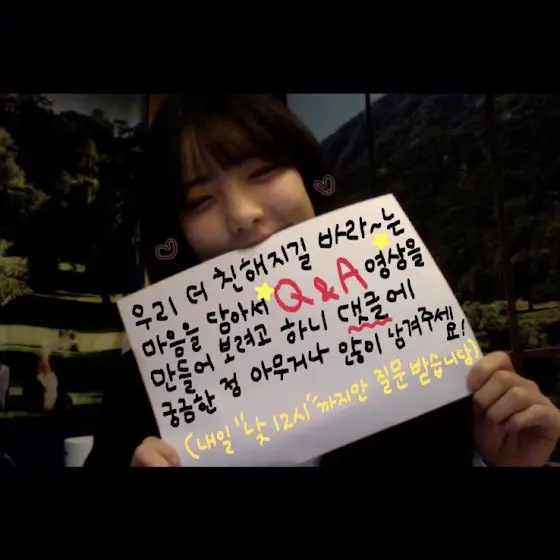 우리 더 친해지길 바라~는
마음을 담아서 Q&A 영상을
만들어 보려고 하니 댓글에
궁금한 점 아무거나 많이 남겨주세요!
(내일 "낮 12시"까지만 질문 받습니답)